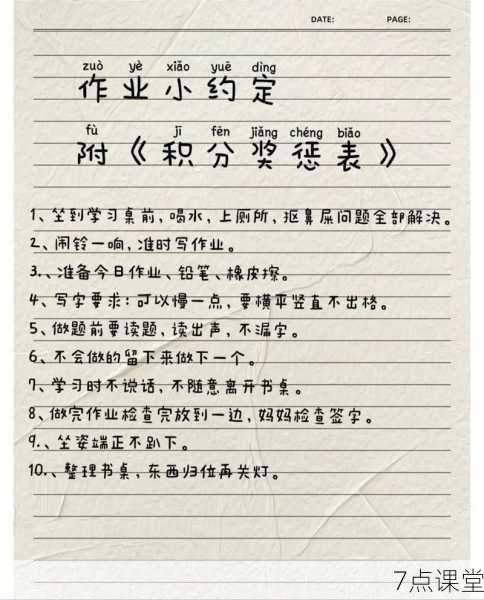 DATE: PAGE:
zuò yè xiǎo yuē dìng
作业小约定
fù jī fēn jiǎng chéng biǎo
附《积分奖惩表》
1、坐到学习桌前，喝水，上厕所，抠鼻屎问题全部解决。
2、闹铃一响，准时写作业。
3.、准备今日作业、铅笔、橡皮擦。
4、写字要求：可以慢一点，要横平竖直不出格。
5、做题前要读题，读出声，不漏字。
6、不会做的留下来做下一个。
7、学习时不说话，不随意离开书桌。
8、做完作业检查完放到一边，妈妈检查签字。
9.、坐姿端正不趴下。
10.、整理书桌，东西归位再关灯。
7点课堂